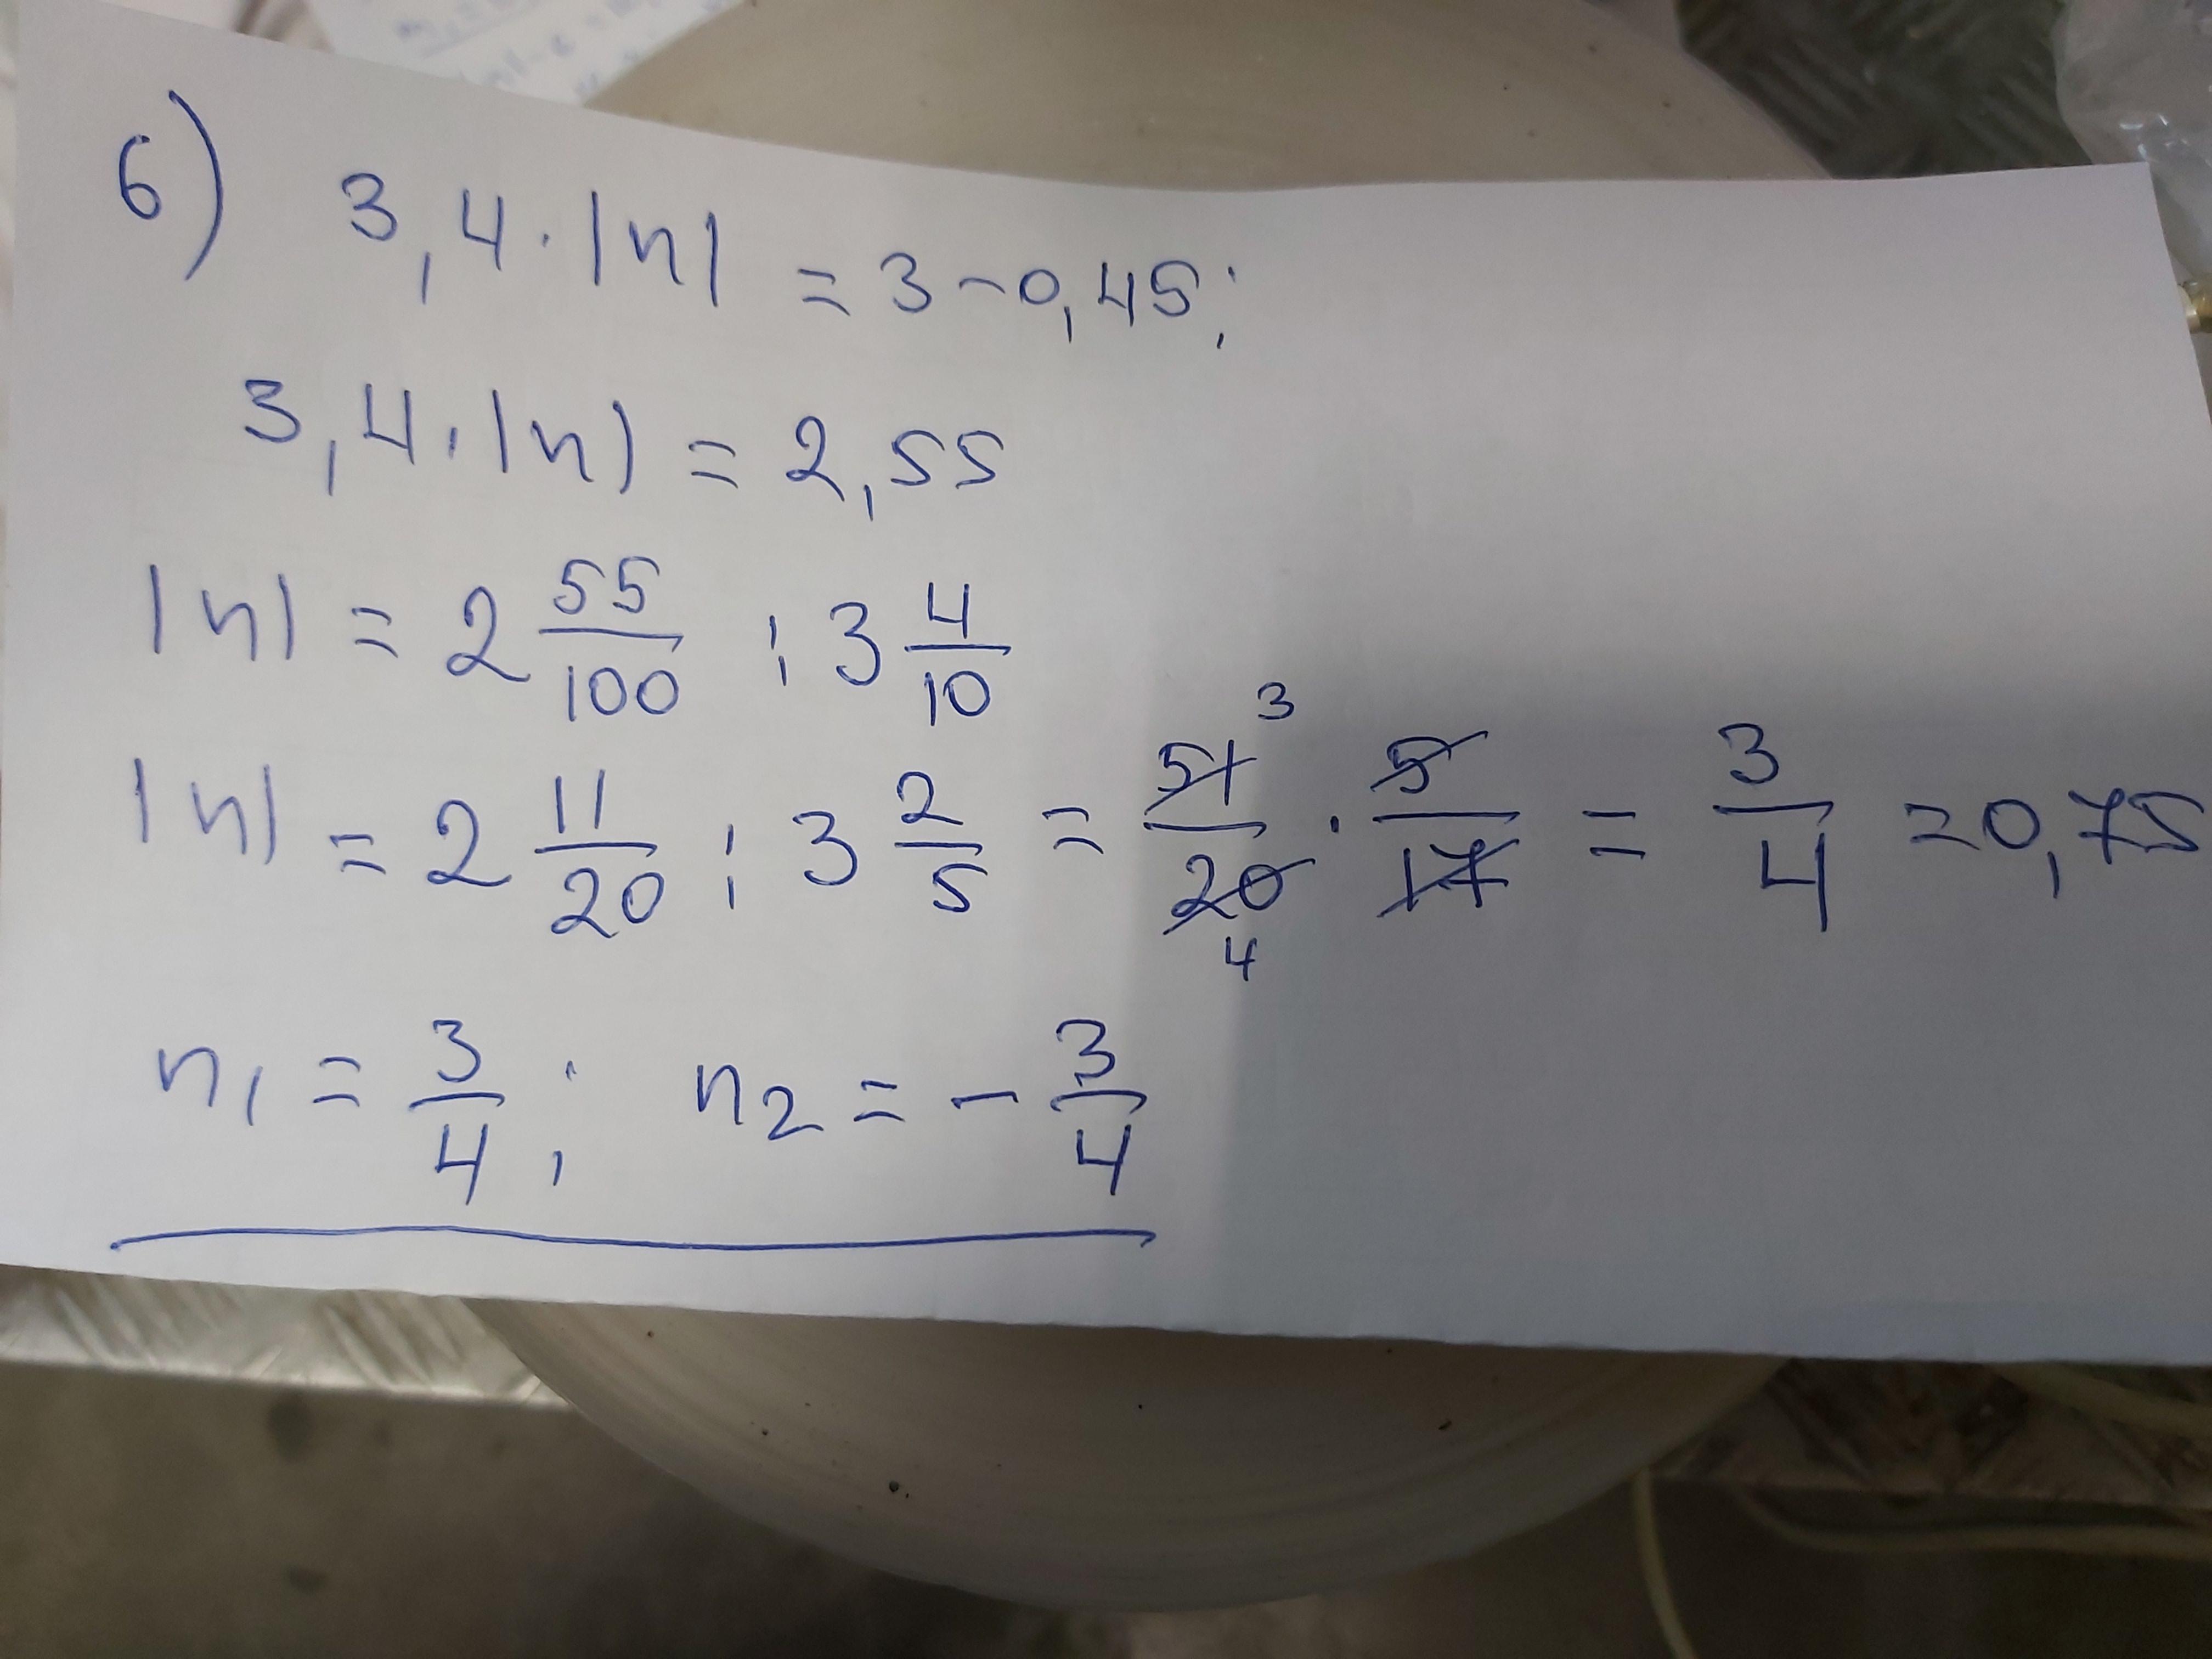 6) 3,4·|n| = 3-0,45;
3,4·|n| = 2,55
|n| = 2 55/100 : 3 4/10
|n| = 2 11/20 : 3 2/5 = 51/20 · 5/17 = 3/4 = 0,75
3
4
n1 = 3/4; n2 = - 3/4